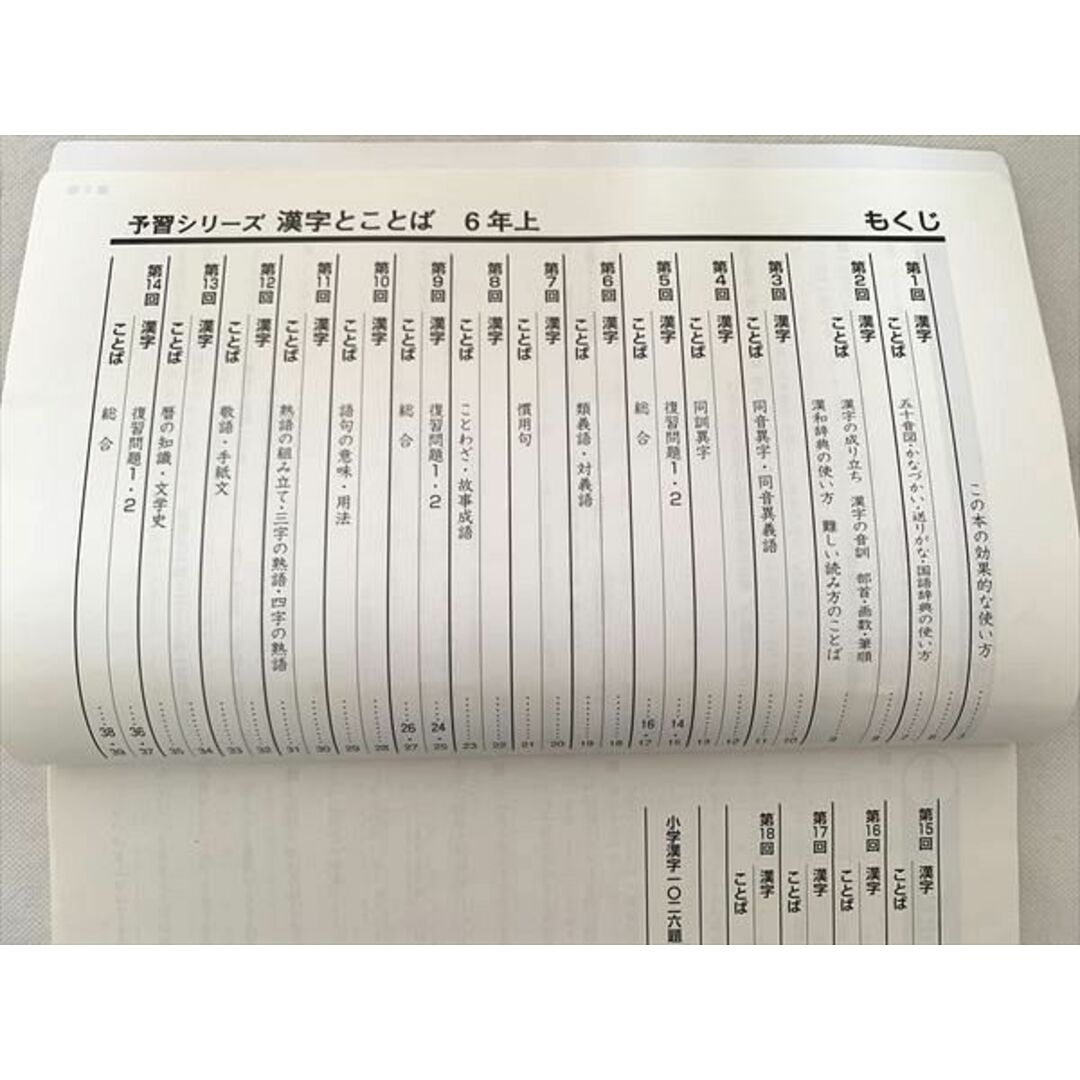 予習シリーズ 漢字とことば 6年上 もくじ
この本の効果的な使い方
第1回 漢字
ことば 五十音図・かなづかい・送りがな・国語辞典の使い方
第2回 漢字
ことば 漢字の成り立ち 漢字の音訓 部首・画数・筆順
漢和辞典の使い方 難しい読み方のことば
第3回 漢字 10
ことば 同音異字・同音異義語 11
第4回 漢字 12
ことば 同訓異字 13
第5回 漢字 復習問題1・2 14・15
ことば 総合 16・17
第6回 漢字 18
ことば 類義語・対義語 19
第7回 漢字 20
ことば 慣用句 21
第8回 漢字 22
ことば ことわざ・故事成語 23
第9回 漢字 復習問題1・2 24・25
ことば 総合 26・27
第10回 漢字 28
ことば 語句の意味・用法 29
第11回 漢字 30
ことば 熟語の組み立て・三字の熟語・四字の熟語 31
第12回 漢字 32
ことば 敬語・手紙文 33
第13回 漢字 34
ことば 暦の知識・文学史 35
第14回 漢字 復習問題1・2 36・37
ことば 総合 38・39
第15回 漢字
ことば
第16回 漢字
ことば
第17回 漢字
ことば
第18回 漢字
ことば
小学漢字一〇二六題